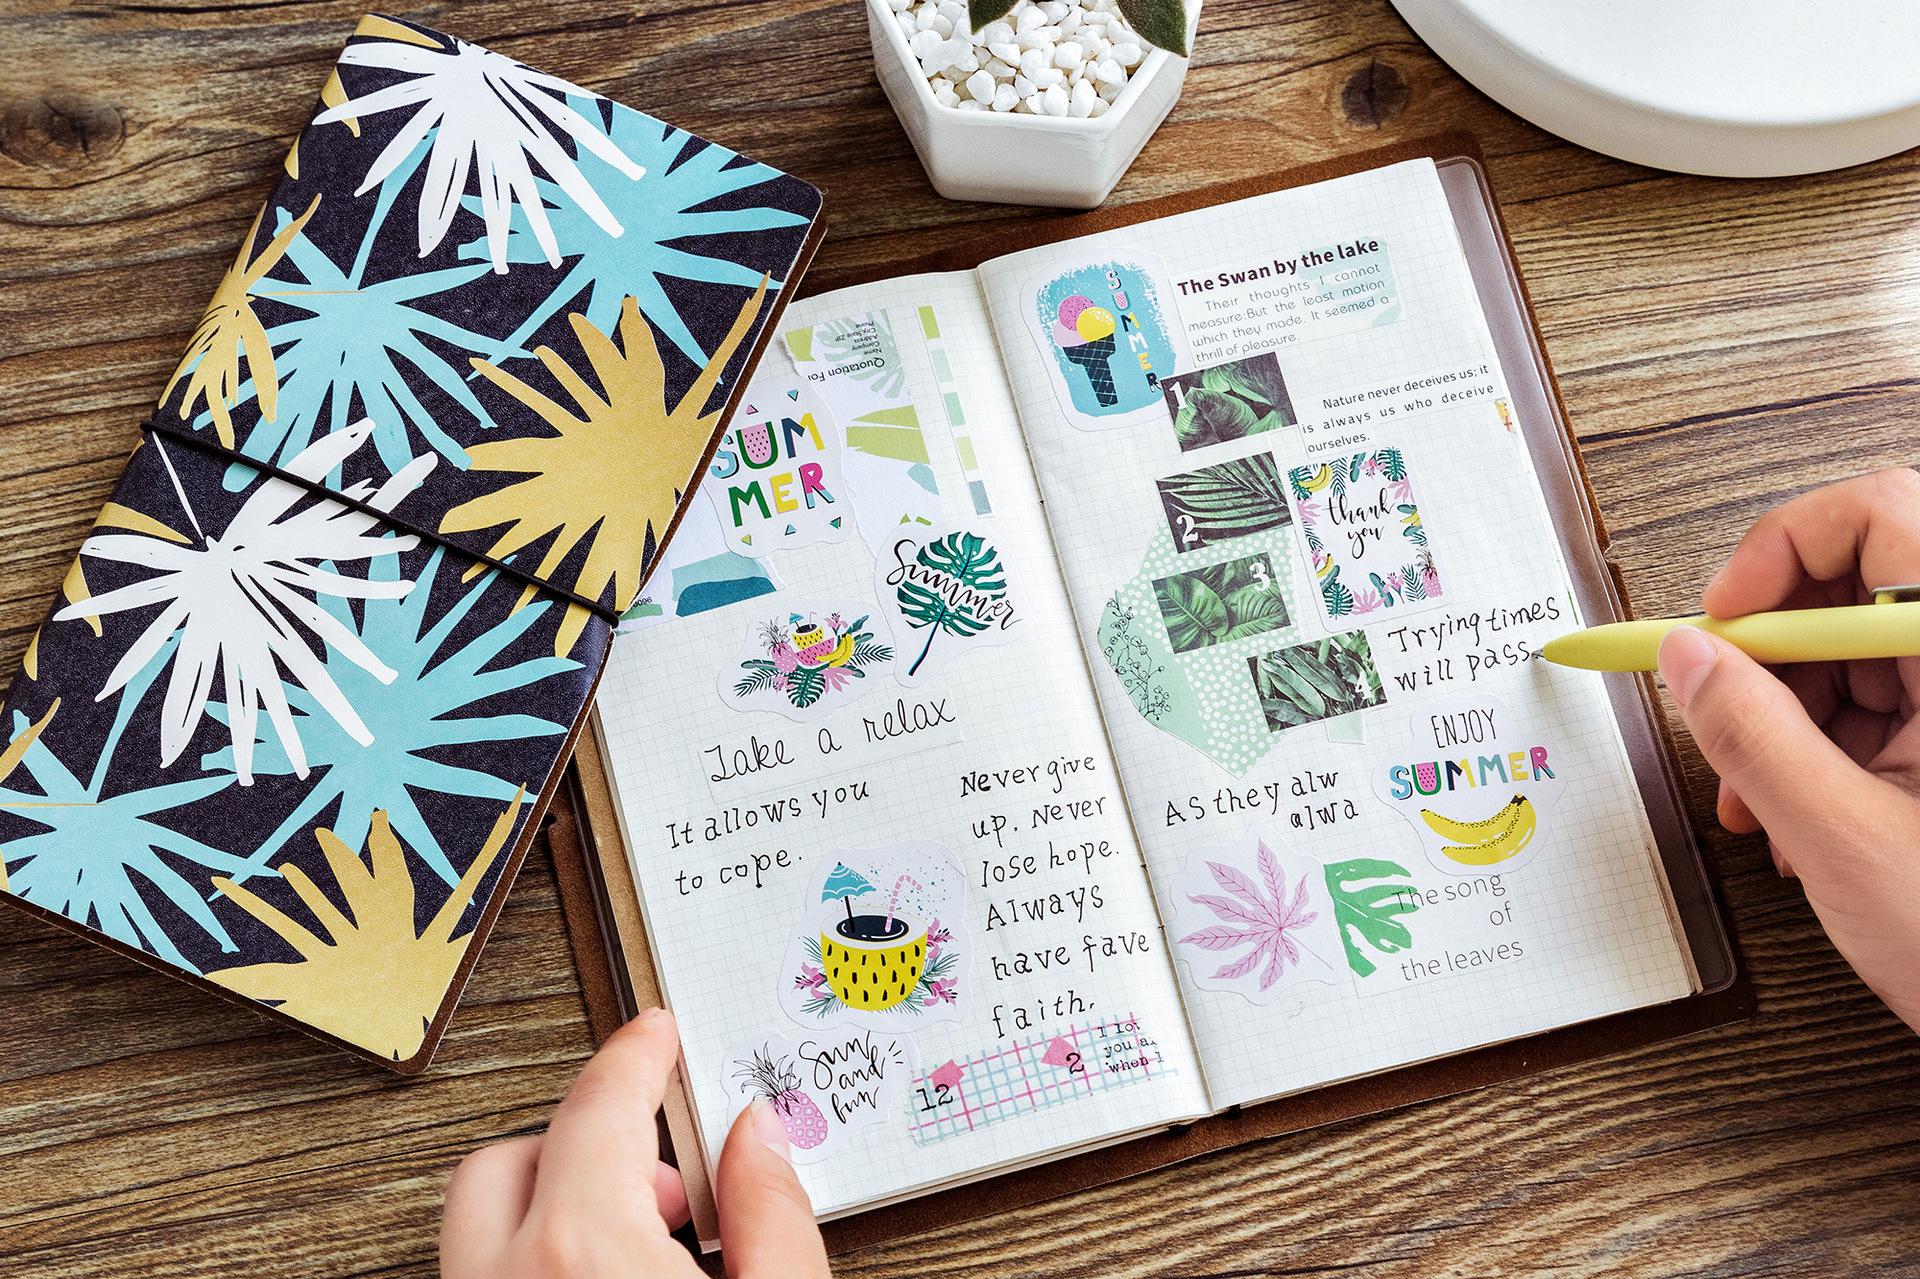 Quotation For
Name
Company
Address
City,State ZIP
Phone
SUM
MER
Summer
Take a relax
It allows you
to cope.
Never give
up. Never
lose hope.
Always
have fave
faith.
Sun
and
fun
12
2
you
when I
SUMMER
The Swan by the lake
Their thoughts I cannot
measure:But the least motion
which they made. It seemed a
thrill of pleasure.
1
Nature never deceives us; it
is always us who deceive
ourselves.
2
thank
you
3
Trying times
will pass
ENJOY
SUMMER
As they alw
alwa
The song
of
the leaves